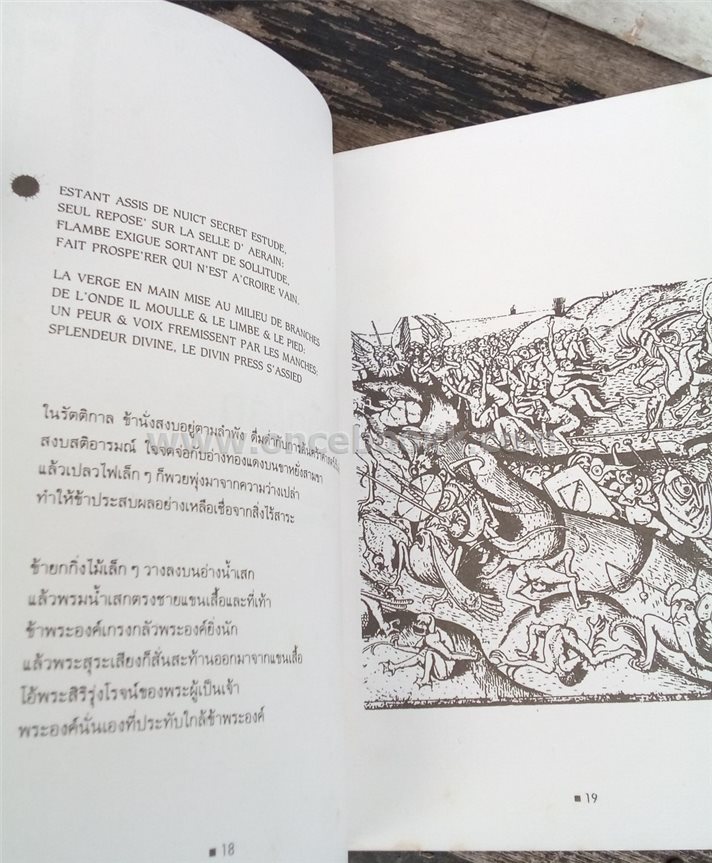 ESTANT ASSIS DE NUICT SECRET ESTUDE,
SEUL REPOSE' SUR LA SELLE D' AERAIN:
FLAMBE EXIGUE SORTANT DE SOLLITUDE,
FAIT PROSPE'RER QUI N'EST A'CROIRE VAIN.
LA VERGE EN MAIN MISE AU MILIEU DE BRANCHES
DE L'ONDE IL MOULLE & LE LIMBE & LE PIED:
UN PEUR & VOIX FREMISSENT PAR LES MANCHES:
SPLENDEUR DIVINE, LE DIVIN PRESS S'ASSIED
ในรัตติกาล ข้านั่งสงบอยู่ตามลำพัง ดื่มด่ำกับการค้นคว้า
สงบสติอารมณ์ ใจจดจ่อกับอ่างทองแดงบนขาหยั่งสามขา
แล้วเปลวไฟเล็ก ๆ ก็พวยพุ่งมาจากความว่างเปล่า
ทำให้ข้าประสบผลอย่างเหลือเชื่อจากสิ่งไร้สาระ
ข้ายกกิ่งไม้เล็ก ๆ วางลงบนอ่างน้ำเสก
แล้วพรมน้ำเสกตรงชายแขนเสื้อและที่เท้า
ข้าพระองค์เกรงกลัวพระองค์ยิ่งนัก
แล้วพระสุระเสียงก็สั่นสะท้านออกมาจากแขนเสื้อ
โอ้พระสิริรุ่งโรจน์ของพระผู้เป็นเจ้า
พระองค์นั่นเองที่ประทับใกล้ข้าพระองค์
■ 18
■ 19